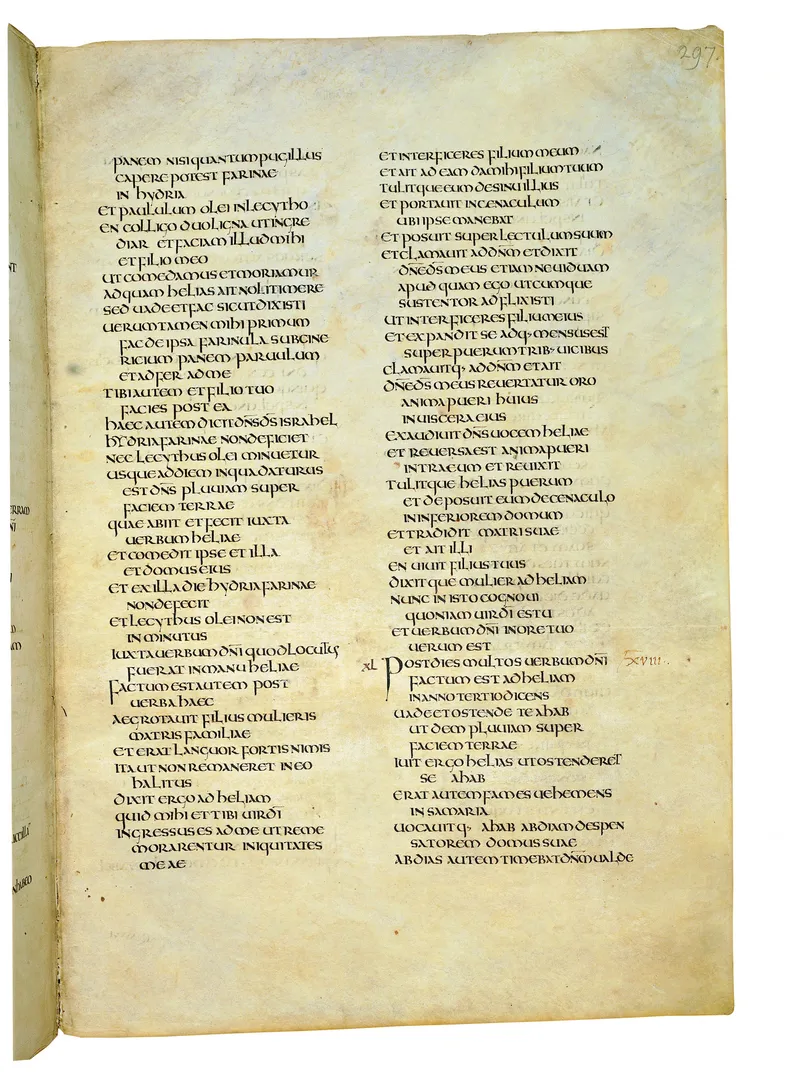 297
PANEM NISI QUANTUM PUGILLUS
CAPERE POTEST FARINAE
IN HYDRIA
ET PAULULUM OLEI IN LECYTHO
EN COLLIGO DUO LIGNA UT INGRE
DIAR ET FACIAM ILLUD MIHI
ET FILIO MEO
UT COMEDAMUS ET MORIAMUR
AD QUAM HELIAS AIT NOLI TIMERE
SED UADE ET FAC SICUT DIXISTI
UERUMTAMEN MIHI PRIMUM
FAC DE IPSA FARINULA SUBCINE
RICIUM PANEM PARUULUM
ET ADFER AD ME
TIBI AUTEM ET FILIO TUO
FACIES POST EA
HAEC AUTEM DICIT DN̅S D̅S ISRAHEL
HYDRIA FARINAE NON DEFICIET
NEC LECYTHUS OLEI MINUETUR
USQUE AD DIEM IN QUA DATURUS
EST DN̅S PLUUIAM SUPER
FACIEM TERRAE
QUAE ABIIT ET FECIT IUXTA
UERBUM HELIAE
ET COMEDIT IPSE ET ILLA
ET DOMUS EIUS
ET EX ILLA DIE HYDRIA FARINAE
NON DEFECIT
ET LECYTHUS OLEI NON EST
INMINUTUS
IUXTA UERBUM DN̅I QUOD LOCUTUS
FUERAT IN MANU HELIAE
FACTUM EST AUTEM POST
UERBA HAEC
AEGROTAUIT FILIUS MULIERIS
MATRIS FAMILIAE
ET ERAT LANGUOR FORTIS NIMIS
ITA UT NON REMANERET IN EO
HALITUS
DIXIT ERGO AD HELIAM
QUID MIHI ET TIBI UIR DI̅
INGRESSUS ES AD ME UT REME
MORARENTUR INIQUITATES
MEAE
ET INTERFICERES FILIUM MEUM
ET AIT AD EAM DA MIHI FILIUM TUUM
TULITQUE EUM DE SINU ILLIUS
ET PORTAUIT IN CENACULUM
UBI IPSE MANEBAT
ET POSUIT SUPER LECTULUM SUUM
ET CLAMAUIT AD DN̅M ET DIXIT
DN̅E D̅S MEUS ETIAM NE UIDUAM
APUD QUAM EGO UTCUMQUE
SUSTENTOR ADFLIXISTI
UT INTERFICERES FILIUM EIUS
ET EXPANDIT SE ADQ· MENSUS EST
SUPER PUERUM TRIB· UICIBUS
CLAMAUITQ· AD DN̅M ET AIT
DN̅E D̅S MEUS REUERTATUR ORO
ANIMA PUERI HUIUS
IN UISCERA EIUS
EXAUDIUIT DN̅S UOCEM HELIAE
ET REUERSA EST ANIMA PUERI
INTRA EUM ET REUIXIT
TULITQUE HELIAS PUERUM
ET DEPOSUIT EUM DE CENACULO
IN INFERIOREM DOMUM
ET TRADIDIT MATRI SUAE
ET AIT ILLI
EN UIUIT FILIUS TUUS
DIXITQUE MULIER AD HELIAM
NUNC IN ISTO COGNOUI
QUONIAM UIR DI̅ ES TU
ET UERBUM DN̅I IN ORE TUO
UERUM EST
XL POST DIES MULTOS UERBUM DN̅I XVIII
FACTUM EST AD HELIAM
IN ANNO TERTIO DICENS
UADE ET OSTENDE TE AHAB
UT DEM PLUUIAM SUPER
FACIEM TERRAE
IUIT ERGO HELIAS UT OSTENDERET
SE AHAB
ERAT AUTEM FAMES UEHEMENS
IN SAMARIA
UOCAUITQ· AHAB ABDIAM DESPEN
SATOREM DOMUS SUAE
ABDIAS AUTEM TIMEBAT DN̅M UALDE